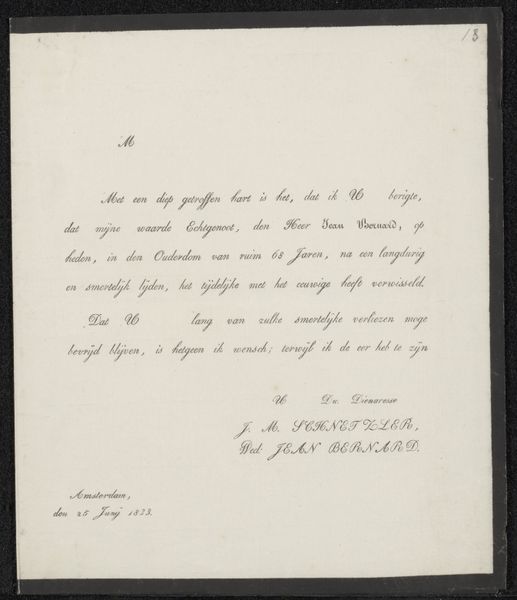 18
M
Met een diep getroffen hart is het, dat ik U berigte,
dat mijne waarde Echtgenoot, den Heer Jean Bernard, op
heden, in den Ouderdom van ruim 68 Jaren, na een langdurig
en smertelijk lijden, het tijdelijke met het eeuwige heeft verwisseld.
Dat U lang van zulke smertelijke verliezen moge
bevrijd blijven, is hetgeen ik wensch; terwijl ik de eer heb te zijn
U Dw. Dienaresse
J. M. SCHNETZLER,
Wed: JEAN BERNARD.
Amsterdam,
den 25 Junij 1833.